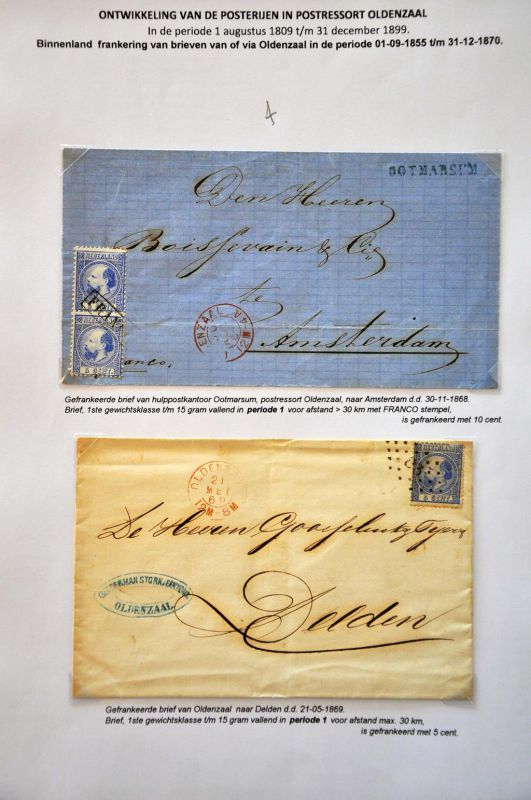 ONTWIKKELING VAN DE POSTERIJEN IN POSTRESSORT OLDENZAAL
In de periode 1 augustus 1809 t/m 31 december 1899.
Binnenland frankering van brieven van of via Oldenzaal in de periode 01-09-1855 t/m 31-12-1870.
4
OOTMARSUM
Den Heeren
Boissevain & Cie
te
Amsterdam
NEDERLAND
5 CENT
franco.
Gefrankeerde brief van hulppostkantoor Ootmarsum, postressort Oldenzaal, naar Amsterdam d.d. 30-11-1868.
Brief, 1ste gewichtsklasse t/m 15 gram vallend in periode 1 voor afstand > 30 km met FRANCO stempel,
is gefrankeerd met 10 cent.
OLDENZ
21
MEI
69
8M
5 CENT
De Heeren
STORK
OLDENZAAL
Delden
Gefrankeerde brief van Oldenzaal naar Delden d.d. 21-05-1869.
Brief, 1ste gewichtsklasse t/m 15 gram vallend in periode 1 voor afstand max. 30 km,
is gefrankeerd met 5 cent.